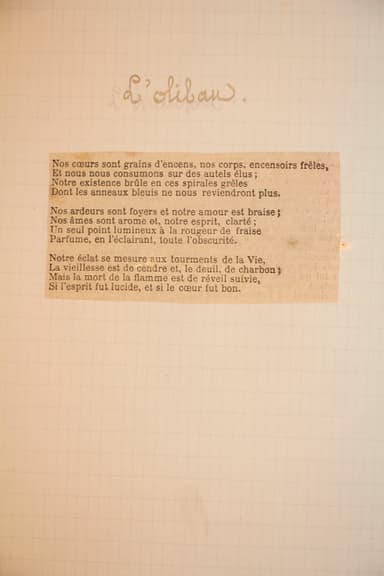 L'oliban.
Nos cœurs sont grains d'encens, nos corps, encensoirs frêles,
Et nous nous consumons sur des autels élus ;
Notre existence brûle en ces spirales grêles
Dont les anneaux bleuis ne nous reviendront plus.
Nos ardeurs sont foyers et notre amour est braise ;
Nos âmes sont arome et, notre esprit, clarté ;
Un seul point lumineux à la rougeur de fraise
Parfume, en l'éclairant, toute l'obscurité.
Notre éclat se mesure aux tourments de la Vie,
La vieillesse est de cendre et, le deuil, de charbon ;
Mais la mort de la flamme est de réveil suivie,
Si l'esprit fut lucide, et si le cœur fut bon.